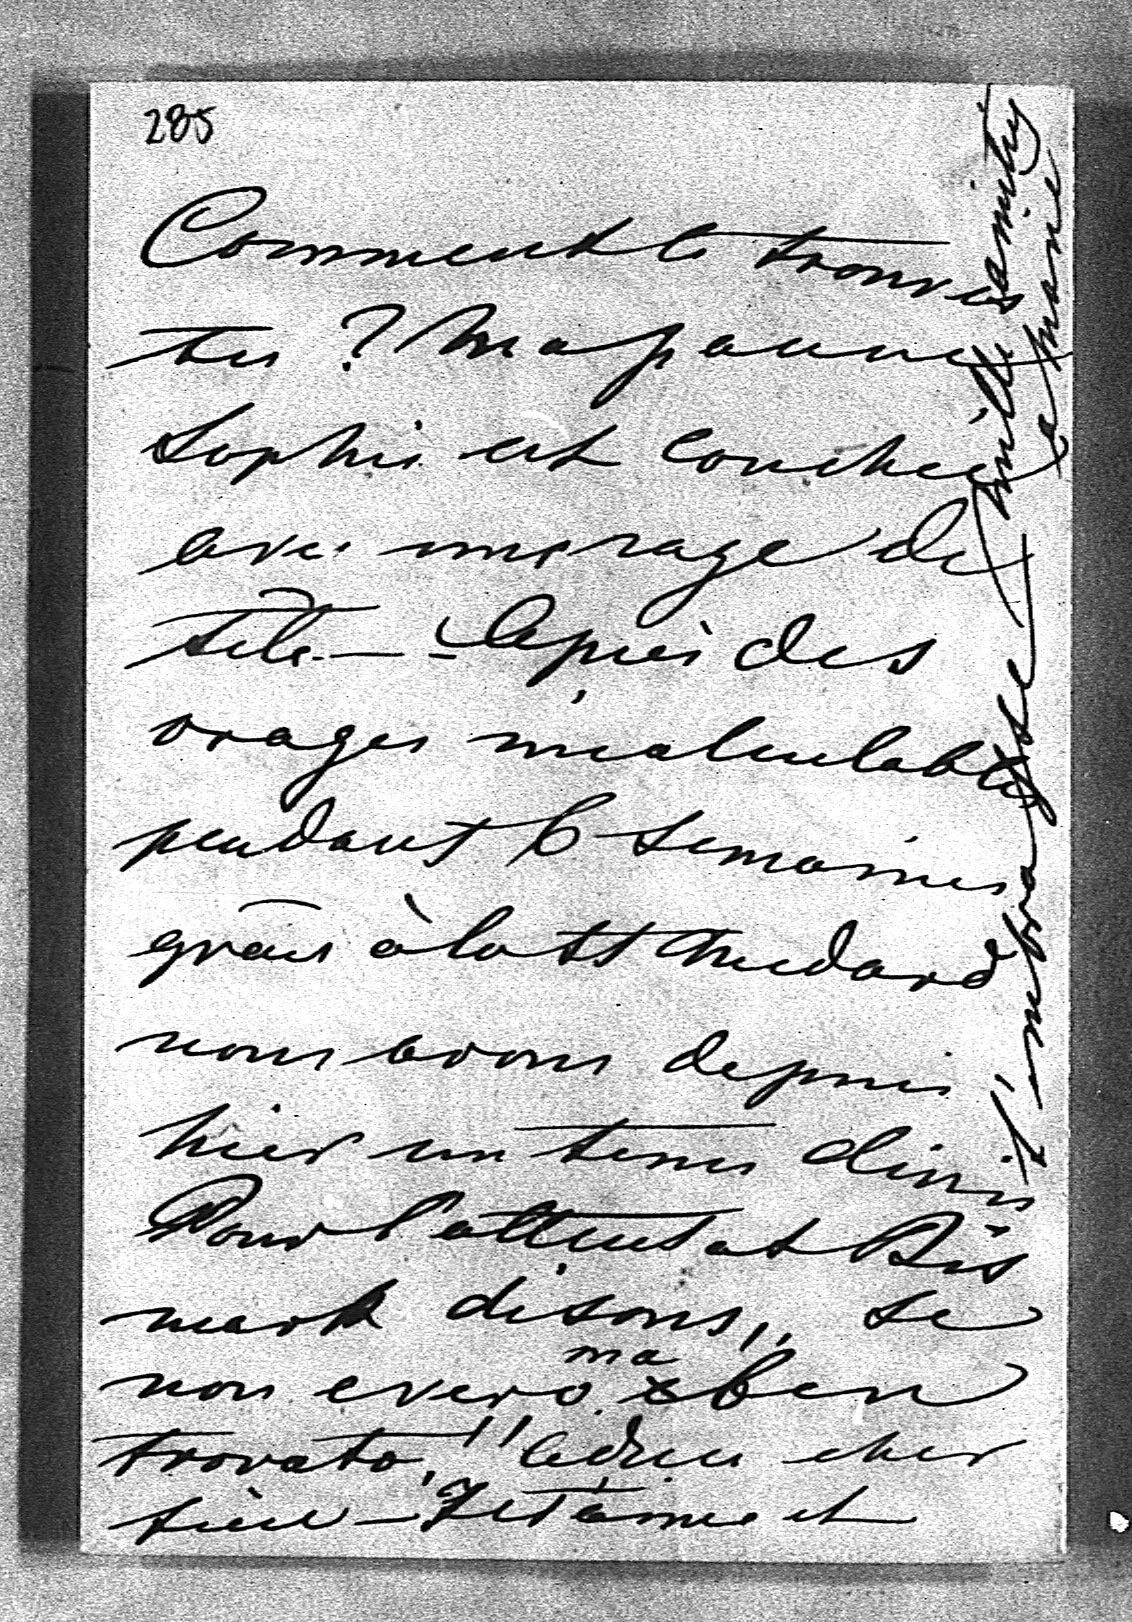 285
Comment le trouves
tu ? Ma pauvre
Sophie est couchée
avec une rage de
tête — Après des
orages incalculables
pendant 6 semaines
grâce à la St Medard
nous avons depuis
hier un tems divin
Pour l'attentat Bis
mark disons „ se
non e vero ma ben
trovato" adieu cher
frère — Je t'aime et
t'embrasse
mille amitiés
a Marie